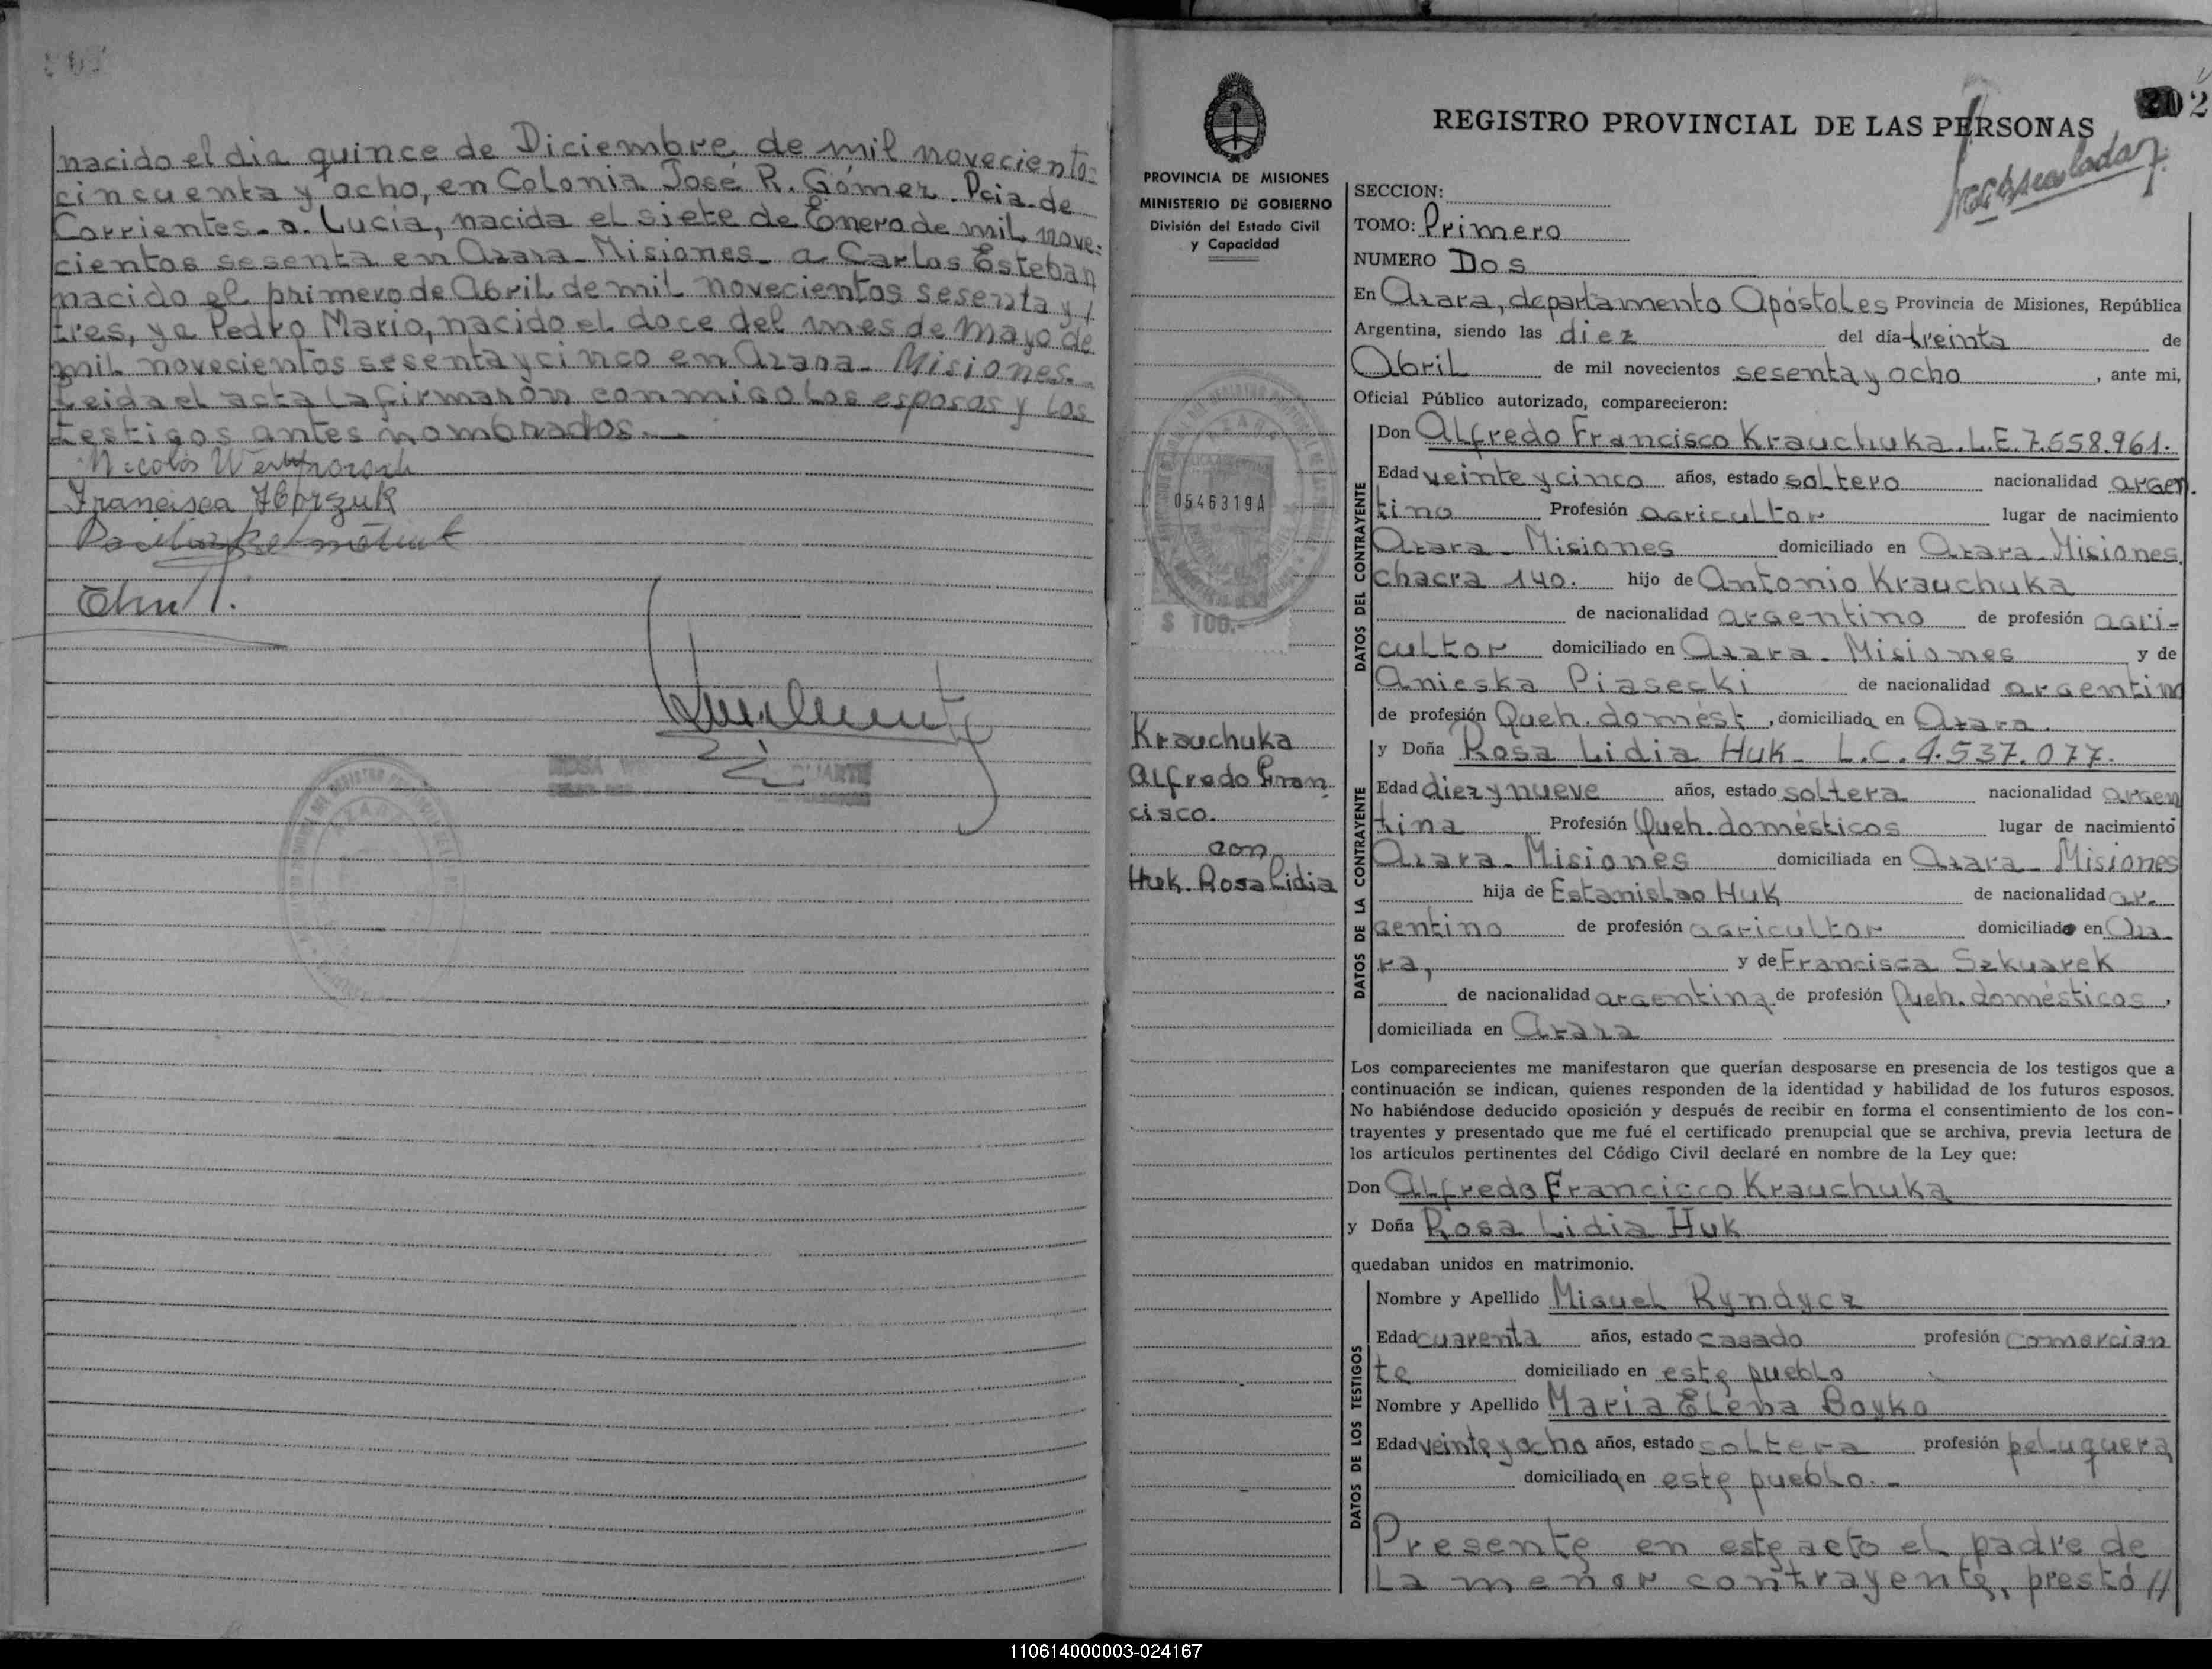 nacido el dia quince de Diciembre de mil novecientos
cincuenta y ocho, en Colonia José R. Gómez. Pcia. de
Corrientes. a. Lucía, nacida el siete de Enero de mil nove-
cientos sesenta en Azara - Misiones - a Carlos Esteban
nacido el primero de Abril de mil novecientos sesenta y
tres, y a Pedro Mario, nacido el doce del mes de Mayo de
mil novecientos sesenta y cinco en Azara - Misiones.
Leida el acta la firmaron conmigo los esposos y los
testigos antes nombrados.
Nicolás
Francisca
DUARTE
202
REGISTRO PROVINCIAL DE LAS PERSONAS
PROVINCIA DE MISIONES
MINISTERIO DE GOBIERNO
División del Estado Civil
y Capacidad
0546319A
$ 100.-
Krauchuka
Alfredo Fran
cisco.
con
Huk. Rosa Lidia
SECCION:
TOMO: Primero
NUMERO Dos
En Azara, departamento Apóstoles Provincia de Misiones, República
Argentina, siendo las diez del día treinta de
Abril de mil novecientos sesenta y ocho, ante mi,
Oficial Público autorizado, comparecieron:
DATOS DEL CONTRAYENTE
Don Alfredo Francisco Krauchuka. L.E. 7.658.961.
Edad veinte y cinco años, estado soltero nacionalidad argen
tino Profesión agricultor lugar de nacimiento
Azara - Misiones domiciliado en Azara - Misiones,
chacra 140. hijo de Antonio Krauchuka
de nacionalidad argentino de profesión agri-
cultor domiciliado en Azara - Misiones y de
Anieska Piasecki de nacionalidad argentin
de profesión Queh. domést, domiciliada en Azara.
DATOS DE LA CONTRAYENTE
y Doña Rosa Lidia Huk - L.C. 4.537.077.
Edad diez y nueve años, estado soltera nacionalidad argen
tina Profesión Queh. domésticos lugar de nacimiento
Azara - Misiones domiciliada en Azara - Misiones
hija de Estanislao Huk de nacionalidad ar-
gentino de profesión agricultor domiciliado en Aza-
ra, y de Francisca Szkuarek
de nacionalidad argentina de profesión Queh. domésticos,
domiciliada en Azara
Los comparecientes me manifestaron que querían desposarse en presencia de los testigos que a
continuación se indican, quienes responden de la identidad y habilidad de los futuros esposos.
No habiéndose deducido oposición y después de recibir en forma el consentimiento de los con-
trayentes y presentado que me fué el certificado prenupcial que se archiva, previa lectura de
los artículos pertinentes del Código Civil declaré en nombre de la Ley que:
Don Alfredo Francicco Krauchuka
y Doña Rosa Lidia Huk
quedaban unidos en matrimonio.
DATOS DE LOS TESTIGOS
Nombre y Apellido Miguel Ryndycz
Edad cuarenta años, estado casado profesión comercian
te domiciliado en este pueblo
Nombre y Apellido Maria Elena Boyko
Edad veinte y ocho años, estado soltera profesión peluquera
domiciliada en este pueblo. -
Presente en este acto el padre de
la menor contrayente, prestó //
110614000003-024167